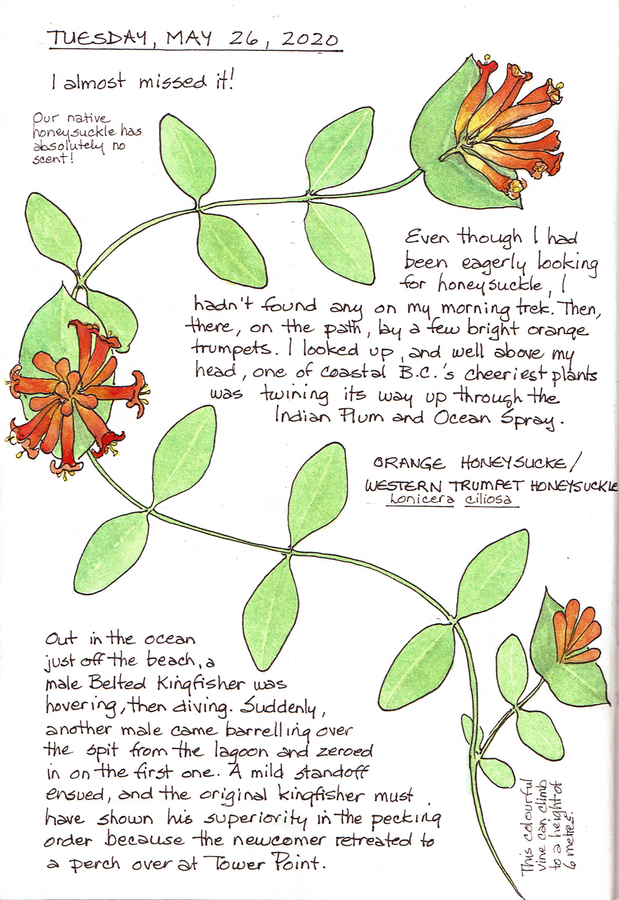 TUESDAY, MAY 26, 2020
I almost missed it!
Our native
honeysuckle has
absolutely no
scent!
Even though I had
been eagerly looking
for honeysuckle, I
hadn't found any on my morning trek. Then,
there, on the path, lay a few bright orange
trumpets. I looked up, and well above my
head, one of coastal B.C.'s cheeriest plants
was twining its way up through the
Indian Plum and Ocean Spray.
ORANGE HONEYSUCKE/
WESTERN TRUMPET HONEYSUCKLE
Lonicera ciliosa
Out in the ocean
just off the beach, a
male Belted Kingfisher was
hovering, then diving. Suddenly,
another male came barrelling over
the spit from the lagoon and zeroed
in on the first one. A mild standoff
ensued, and the original kingfisher must
have shown his superiority in the pecking
order because the newcomer retreated to
a perch over at Tower Point.
This colourful
vine can climb
to a height of
6 metres.